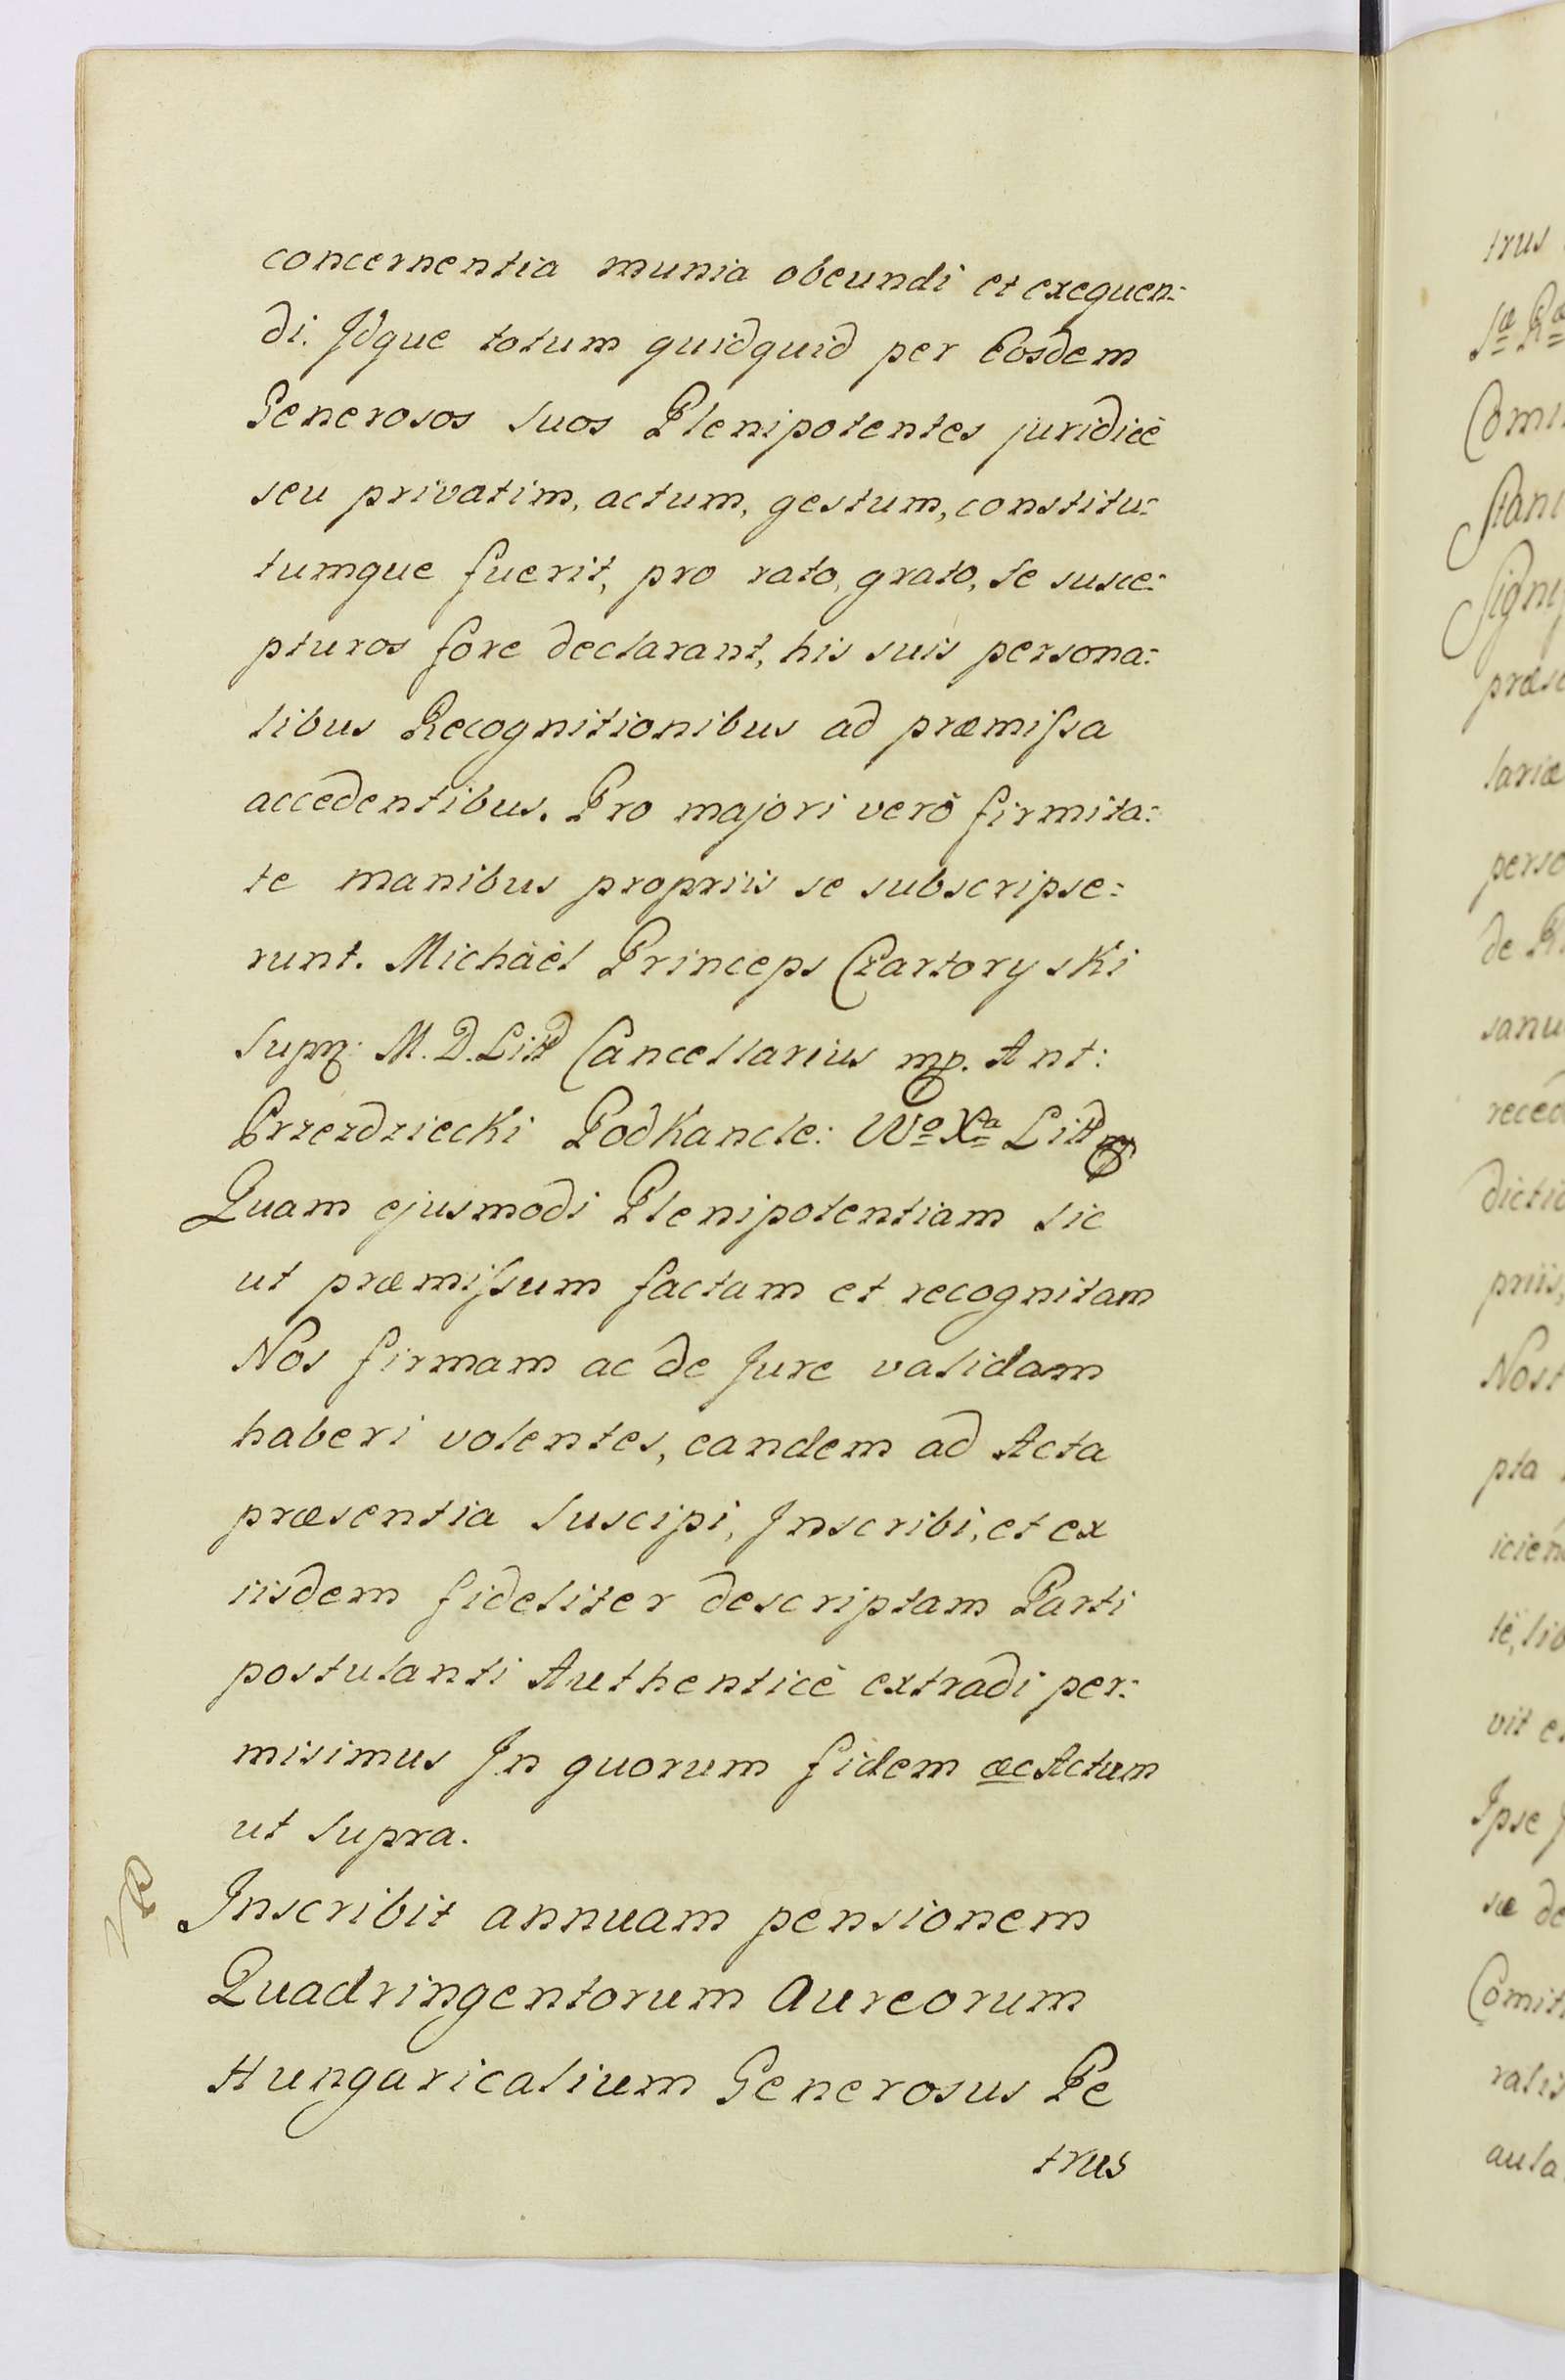 concernentia munia obeundi et exequen:
di. Idque totum quidquid per Eosdem
Generosos Suos Plenipotentes juridicè
seu privatim, actum, gestum, constitu:
tumque fuerit, pro rato, grato, se susce:
pturos fore declarant, his suis persona:
libus Recognitionibus ad præmissa
accedentibus. Pro majori verò firmita:
te manibus propriis se subscripse:
runt. Michäel Princeps Czartoryski
Supq: M. D. Litt Cancellarius mp. Ant:
Przezdziecki Podkancle: Wo Xa Litt mp
Quam ejusmodi Plenipotentiam sic
ut præmissum factam et recognitam
Nos firmam ac de Jure validam
haberi volentes, eandem ad Acta
præsentia Suscipi, Inscribi, et ex
iisdem fideliter descriptam Parti
postulanti Authenticè extradi per:
misimus In quorum fidem æc Actum
ut Supra.
Inscribit annuam pensionem
Quadringentorum Aureorum
Hungaricalium Generosus Pe
trus
trus
Sæ Ræ
Comi
Stani
Signi
præs
lariæ
perso
de R
sanu
reced
dictio
priis,
Nost
pta
icien
tè, lib
vit e
Ipse
sæ de
Comit
ralis
aula